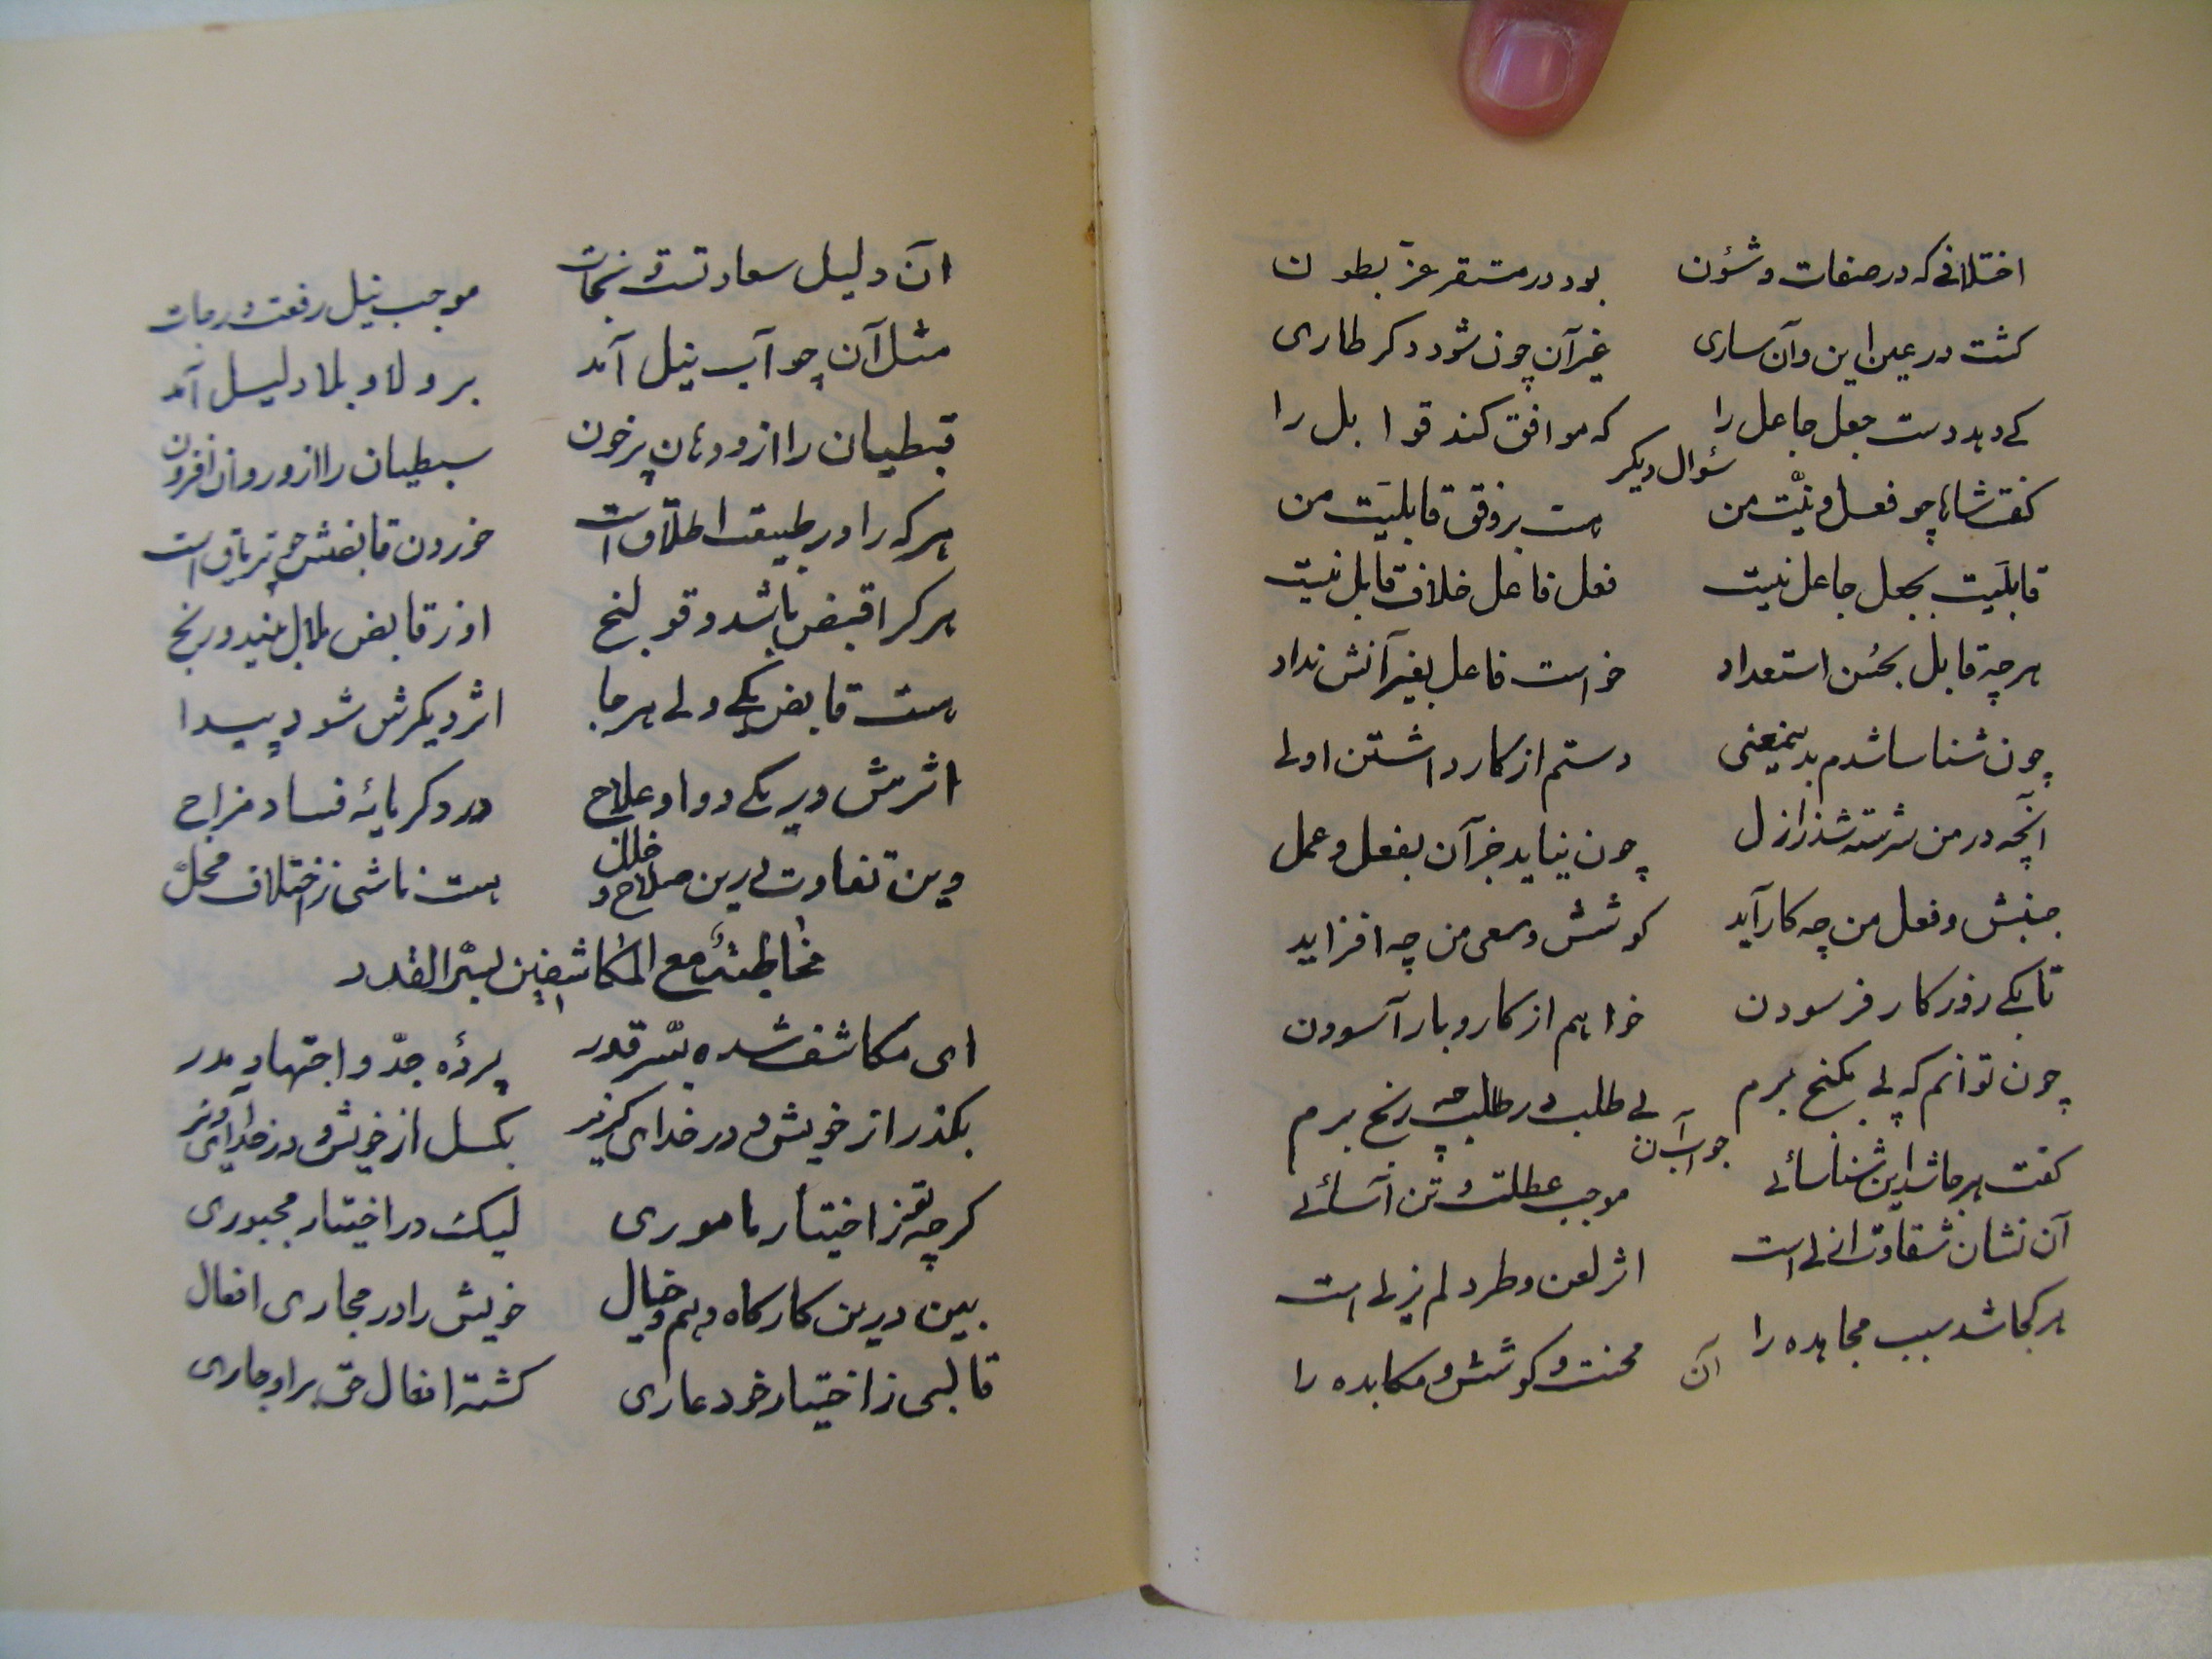 اختلافی که در صفات و شؤن بود در مستقر عزّ بطون
کشت در عین این و آن ساری غیر آن چون شود دکر طاری
کے دهد دست جعل جاعل را که موافق کند قوابل را
سؤال دیکر
کفت شاها چو فعل و نیّت من هست بر وفق قابلیّت من
قابلیّت بجعل جاعل نیست فعل فاعل خلاف قابل نیست
هرچه قابل بحُسن استعداد خواست فاعل بغیر آنش نداد
چون شناسا شدم بدینمعنی دستم از کار داشتن اولی
آنچه در من سرشته شد ز ازل چون نیاید جز آن بفعل و عمل
جنبش و فعل من چه کار آید کوشش و سعی من چه افزاید
تا بکے روز کار فرسودن خواهم از کار و بار آسودن
چون توانم که پی بکنج برم بے طلب در طلب چه رنج برم
جواب آن
کفت هر جا شد این شناسائے موجب عطلت و تن آسائے
آن نشان شقاوت ازلی است اثر لعن و طرد لم یزلی است
هر کجا شد سبب مجاهده را محنت و کوشش و مکابده را
آن
آن دلیل سعادتست و نجات موجب نیل رفعت درجات
مثل آن چو آب نیل آمد بر ولا و بلا دلیل آمد
قبطیان را ازو دهان پر خون سبطیان را ازو روان افزون
هر که را در طبیعت اطلاق است خوردن قابضش چو تریاق است
هر کرا قبض باشد و قولنج او ز قابض ملال بیند و رنج
هست قابض یکے ولے هر جا اثر دیکرش شود پیدا
اثرش در یکے دوا و علاج در دکر مایهٔ فساد مزاج
وین تفاوت درین صلاح و خلل هست ناشی ز اختلاف محلّ
مخاطبتة مع المکاشفین بسرّ القدر
ای مکاشف شده بسّر قدر پردهٔ جدّ و اجتهاد مدر
بکذر از خویش و در خدای کریز بکسل از خویش و در خدای آویز
کرچه تو ز اختیار ماموری لیک در اختیار مجبوری
بین درین کارکاه وهم و خیال خویش را در مجاری افعال
قالبی ز اختیار خود عاری کشته افعال حق براو جاری